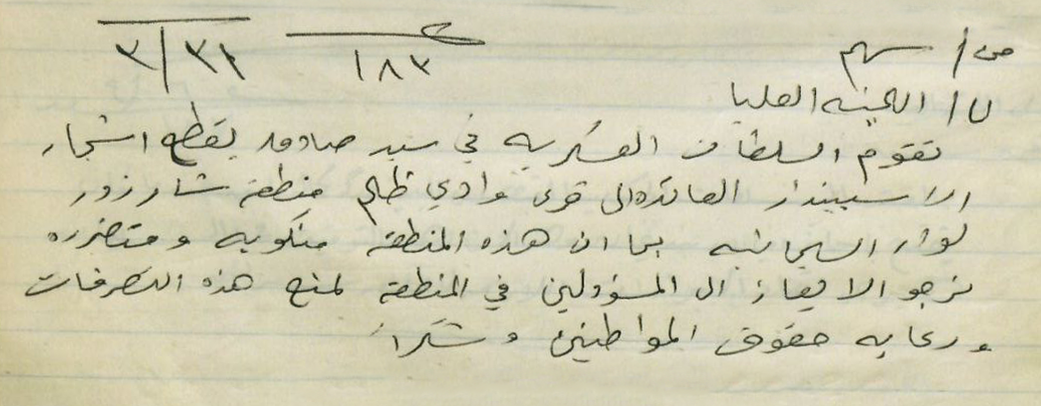 من / سهم ١٨٣ ٣/٣١
ل / اللجنه العليا
تقوم السلطات العسكريه في سيد صادق بقطع اشجار
الاسبيندار العائده الى قرى وادي ظلم منطقة شارزور
لواء السليمانيه بما ان هذه المنطقة منكوبه ومتضرره
نرجو الايعاز الى المسؤولين في المنطقة لمنع هذه التصرفات
ورعايه حقوق المواطنين وشكراً